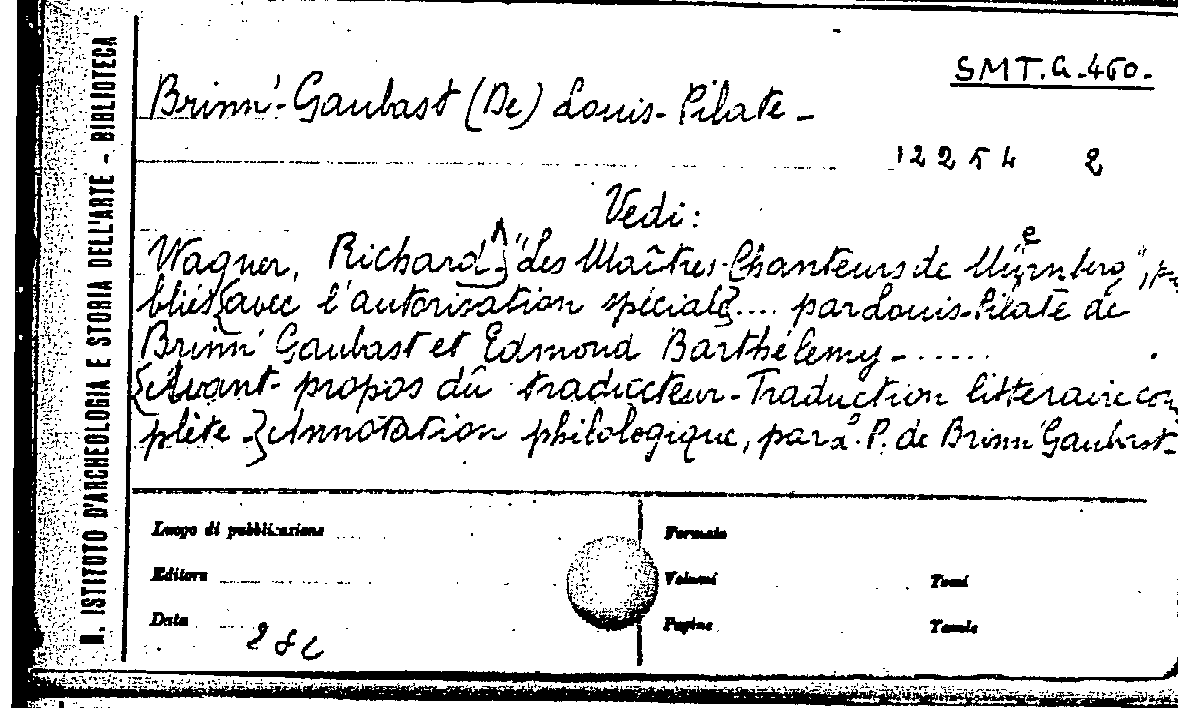 R. ISTITUTO D'ARCHEOLOGIA E STORIA DELL'ARTE - BIBLIOTECA
SMT.G.450.-
Brinn'-Gaubast (De) Louis-Pilate -
12254 2
Vedi:
Wagner, Richard "Les Maîtres-Chanteurs de Nürnberg", pu
bliés {avec l'autorisation spéciale} .... par Louis-Pilate de
Brinn' Gaubast et Edmond Barthélemy - .....
{Avant-propos du traducteur - Traduction littéraire com
plète -} Annotation philologique, par L. P. de Brinn' Gaubast -
Luogo di pubblicazione
Formato
Editore
Volumi
Tomi
Data
Pagine
Tavole